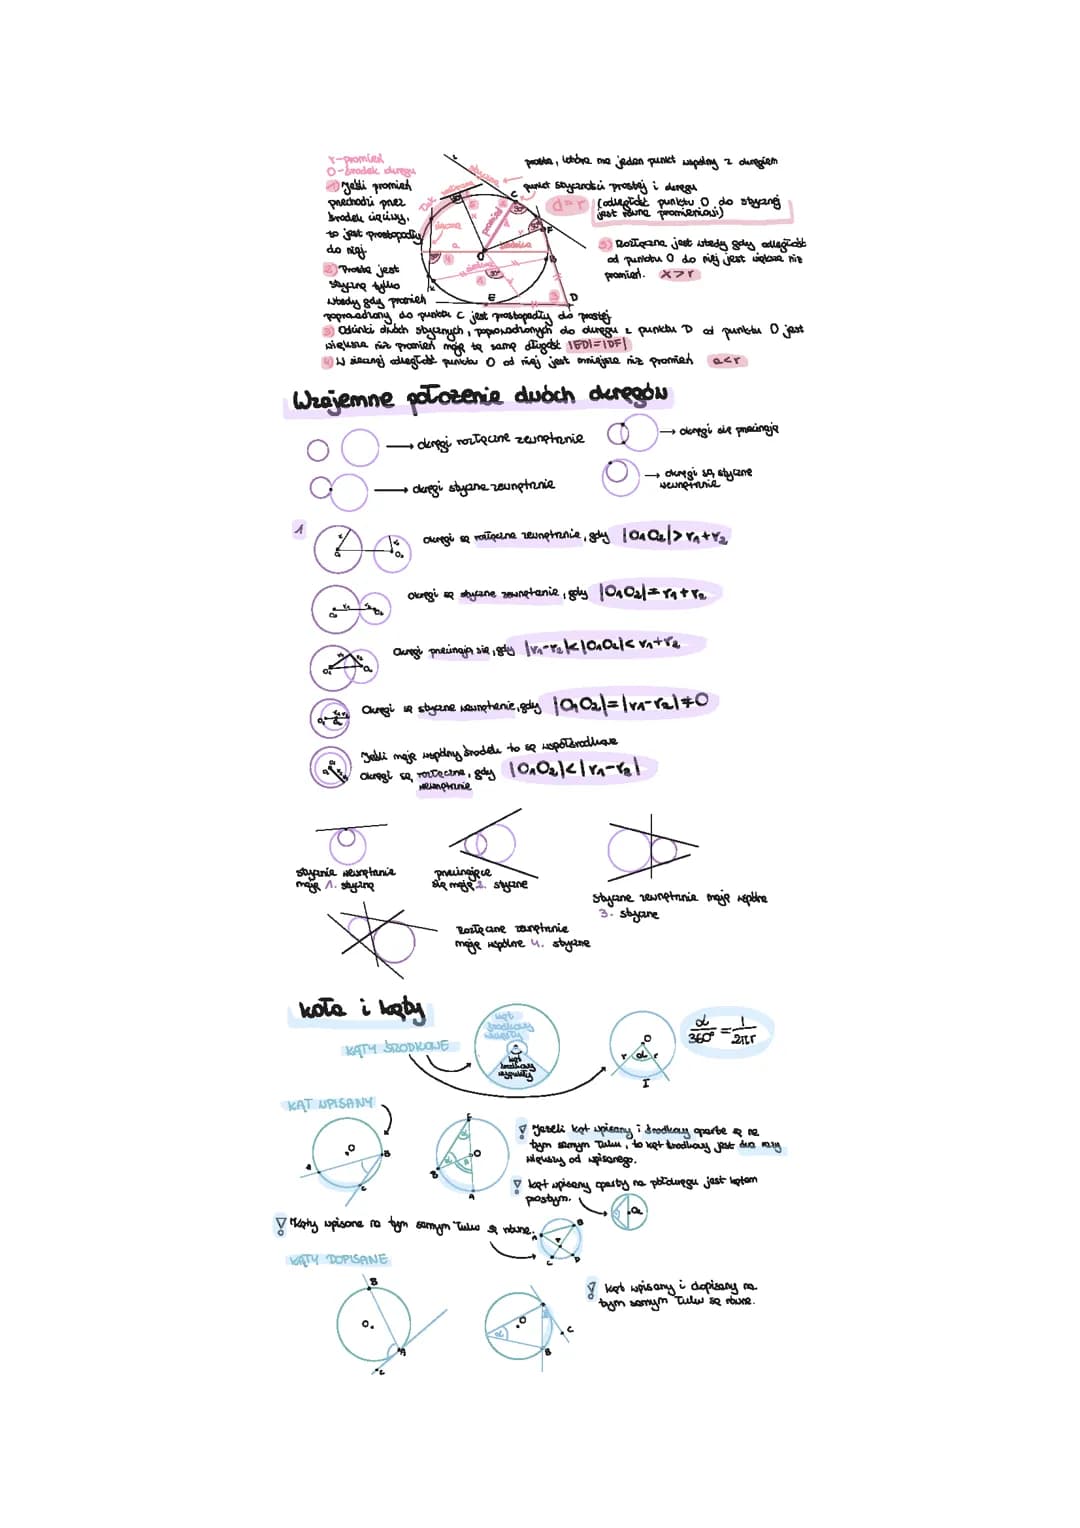 r-promień
O-środek okręgu
1) Jeśli promień
przechodzi przez
środek cięciwy,
to jest prostopadły
do niej.
2) Prosta jest
styczną tylko
wtedy gdy promień
poprowadzony do punktu C jest prostopadły do prostej.
3) Odcinki dwóch stycznych, poprowadzonych do okręgu z punktu D od punktu O jest
większa niż promień mają tę samą długość |ED|=|DF|
4) W siecznej odległość punktu O od niej jest mniejsza niż promień a<r
styczna
promień
sieczna
średnica
cięciwa
C
F
B
O
E
D
prosta, która ma jeden punkt wspólny z okręgiem
punkt styczności prostej i okręgu
d=r (odległość punktu O do stycznej
jest równa promieniowi)
5) Rozłączna jest wtedy gdy odległość
od punktu O do niej jest większa niż
promień. x>r
Wzajemne położenie dwóch okręgów
okręgi rozłączne zewnętrznie
okręgi się przecinają
okręgi styczne zewnętrznie
okręgi są styczne
wewnętrznie
1
okręgi są rozłączne zewnętrznie, gdy |O₁O₂|>r₁+r₂
okręgi są styczne zewnętrznie, gdy |O₁O₂|=r₁+r₂
Okręgi przecinają się, gdy |r₁-r₂|<|O₁O₂|<r₁+r₂
Okręgi są styczne wewnętrznie, gdy |O₁O₂|=|r₁-r₂|≠0
Jeśli mają wspólny środek to są współśrodkowe
okręgi są rozłączne, gdy |O₁O₂|<|r₁-r₂|
wewnętrznie
stycznie wewnętrznie
mają 1. styczną
przecinające
się mają 2. styczne
styczne zewnętrznie mają wspólne
3. styczne
Rozłączne zewnętrznie
mają wspólne 4. styczne
koła i kąty
KĄTY ŚRODKOWE
kąt
środkowy
wklęsły
kąt
środkowy
wypukły
O
r α r
I
α/360° = 1/2πr
KĄT WPISANY
O
A
B
C
F
α
O
B
A
! Jeżeli kąt wpisany i środkowy oparte są na
tym samym łuku, to kąt środkowy jest dwa razy
większy od wpisanego.
! kąt wpisany oparty na półokręgu jest kątem
prostym.
! Kąty wpisane na tym samym łuku są równe.
A
B
C
D
KĄTY DOPISANE
B
O
A
C
O
α
C
B
! kąt wpisany i dopisany na
tym samym łuku są równe.